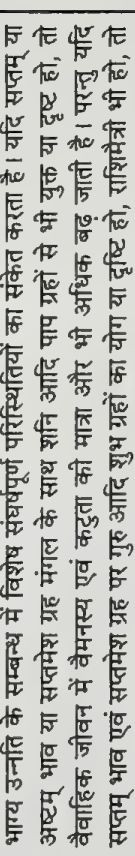 भाग्य उन्नति के सम्बन्ध में विशेष संघर्षपूर्ण परिस्थितियों का संकेत करता है। यदि सप्तम् या
अष्टम् भाव या सप्तमेश ग्रह मंगल के साथ शनि आदि पाप ग्रहों से भी युक्त या दृष्ट हो, तो
वैवाहिक जीवन में वैमनस्य एवं कटुता की मात्रा और भी अधिक बढ़ जाती है। परन्तु यदि
सप्तम् भाव एवं सप्तमेश ग्रह पर गुरु आदि शुभ ग्रहों का योग या दृष्टि हो, राशिमैत्री भी हो, तो